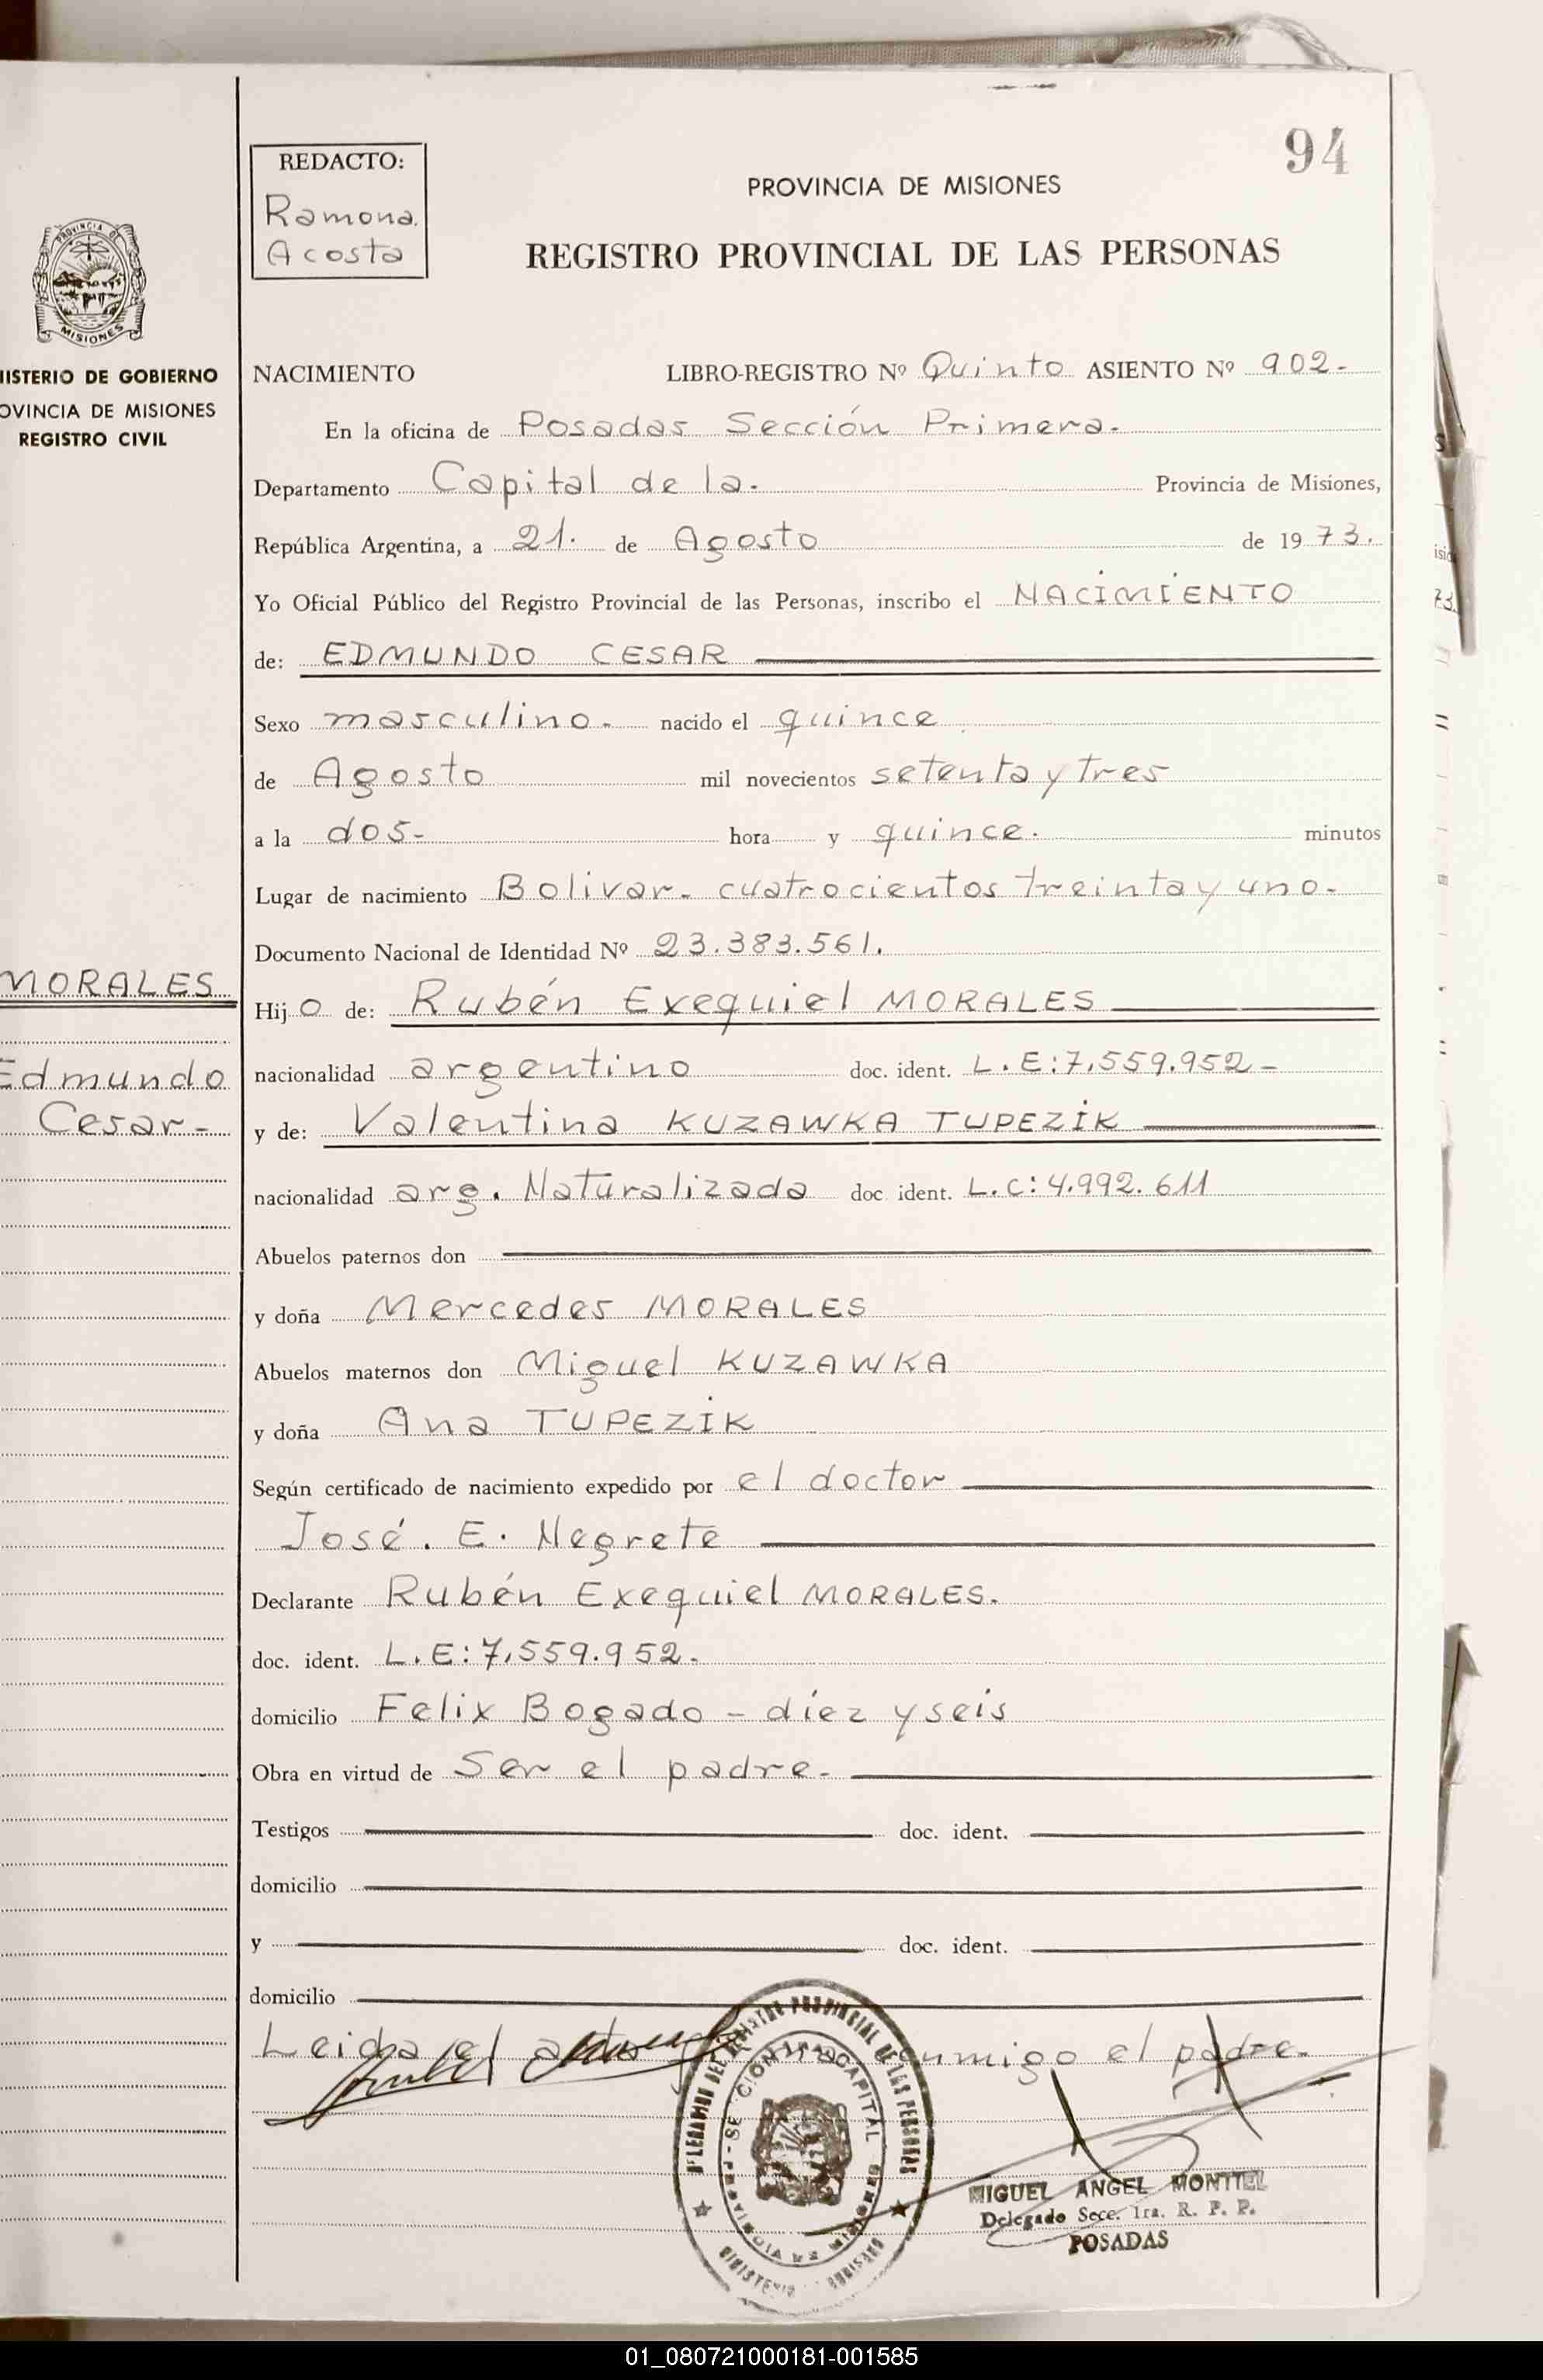 94
REDACTO:
Ramona.
Acosta
PROVINCIA DE MISIONES
REGISTRO PROVINCIAL DE LAS PERSONAS
MISIONES
NISTERIO DE GOBIERNO
OVINCIA DE MISIONES
REGISTRO CIVIL
MORALES
Edmundo
Cesar-
NACIMIENTO LIBRO-REGISTRO Nº Quinto ASIENTO Nº 902-
En la oficina de Posadas Sección Primera.
Departamento Capital de la. Provincia de Misiones,
República Argentina, a 21. de Agosto de 1973.
Yo Oficial Público del Registro Provincial de las Personas, inscribo el NACIMIENTO
de: EDMUNDO CESAR
Sexo masculino. nacido el quince
de Agosto mil novecientos setenta y tres
a la dos- hora y quince. minutos
Lugar de nacimiento Bolivar- cuatrocientos treinta y uno-
Documento Nacional de Identidad Nº 23.383.561.
Hijo de: Rubén Exequiel MORALES
nacionalidad argentino doc. ident. L.E:7.559.952-
y de: Valentina KUZAWKA TUPEZIK
nacionalidad arg. Naturalizada doc ident. L.C:4.992.611
Abuelos paternos don
y doña Mercedes MORALES
Abuelos maternos don Miguel KUZAWKA
y doña Ana TUPEZIK
Según certificado de nacimiento expedido por el doctor
José. E. Negrete
Declarante Rubén Exequiel MORALES.
doc. ident. L.E:7.559.952.
domicilio Felix Bogado - diez y seis
Obra en virtud de Ser el padre-
Testigos doc. ident.
domicilio
y doc. ident.
domicilio
Leida el acta conmigo el padre.
MIGUEL ANGEL MONTIEL
Delegado Secc. 1ra. R. P. P.
POSADAS
01_080721000181-001585